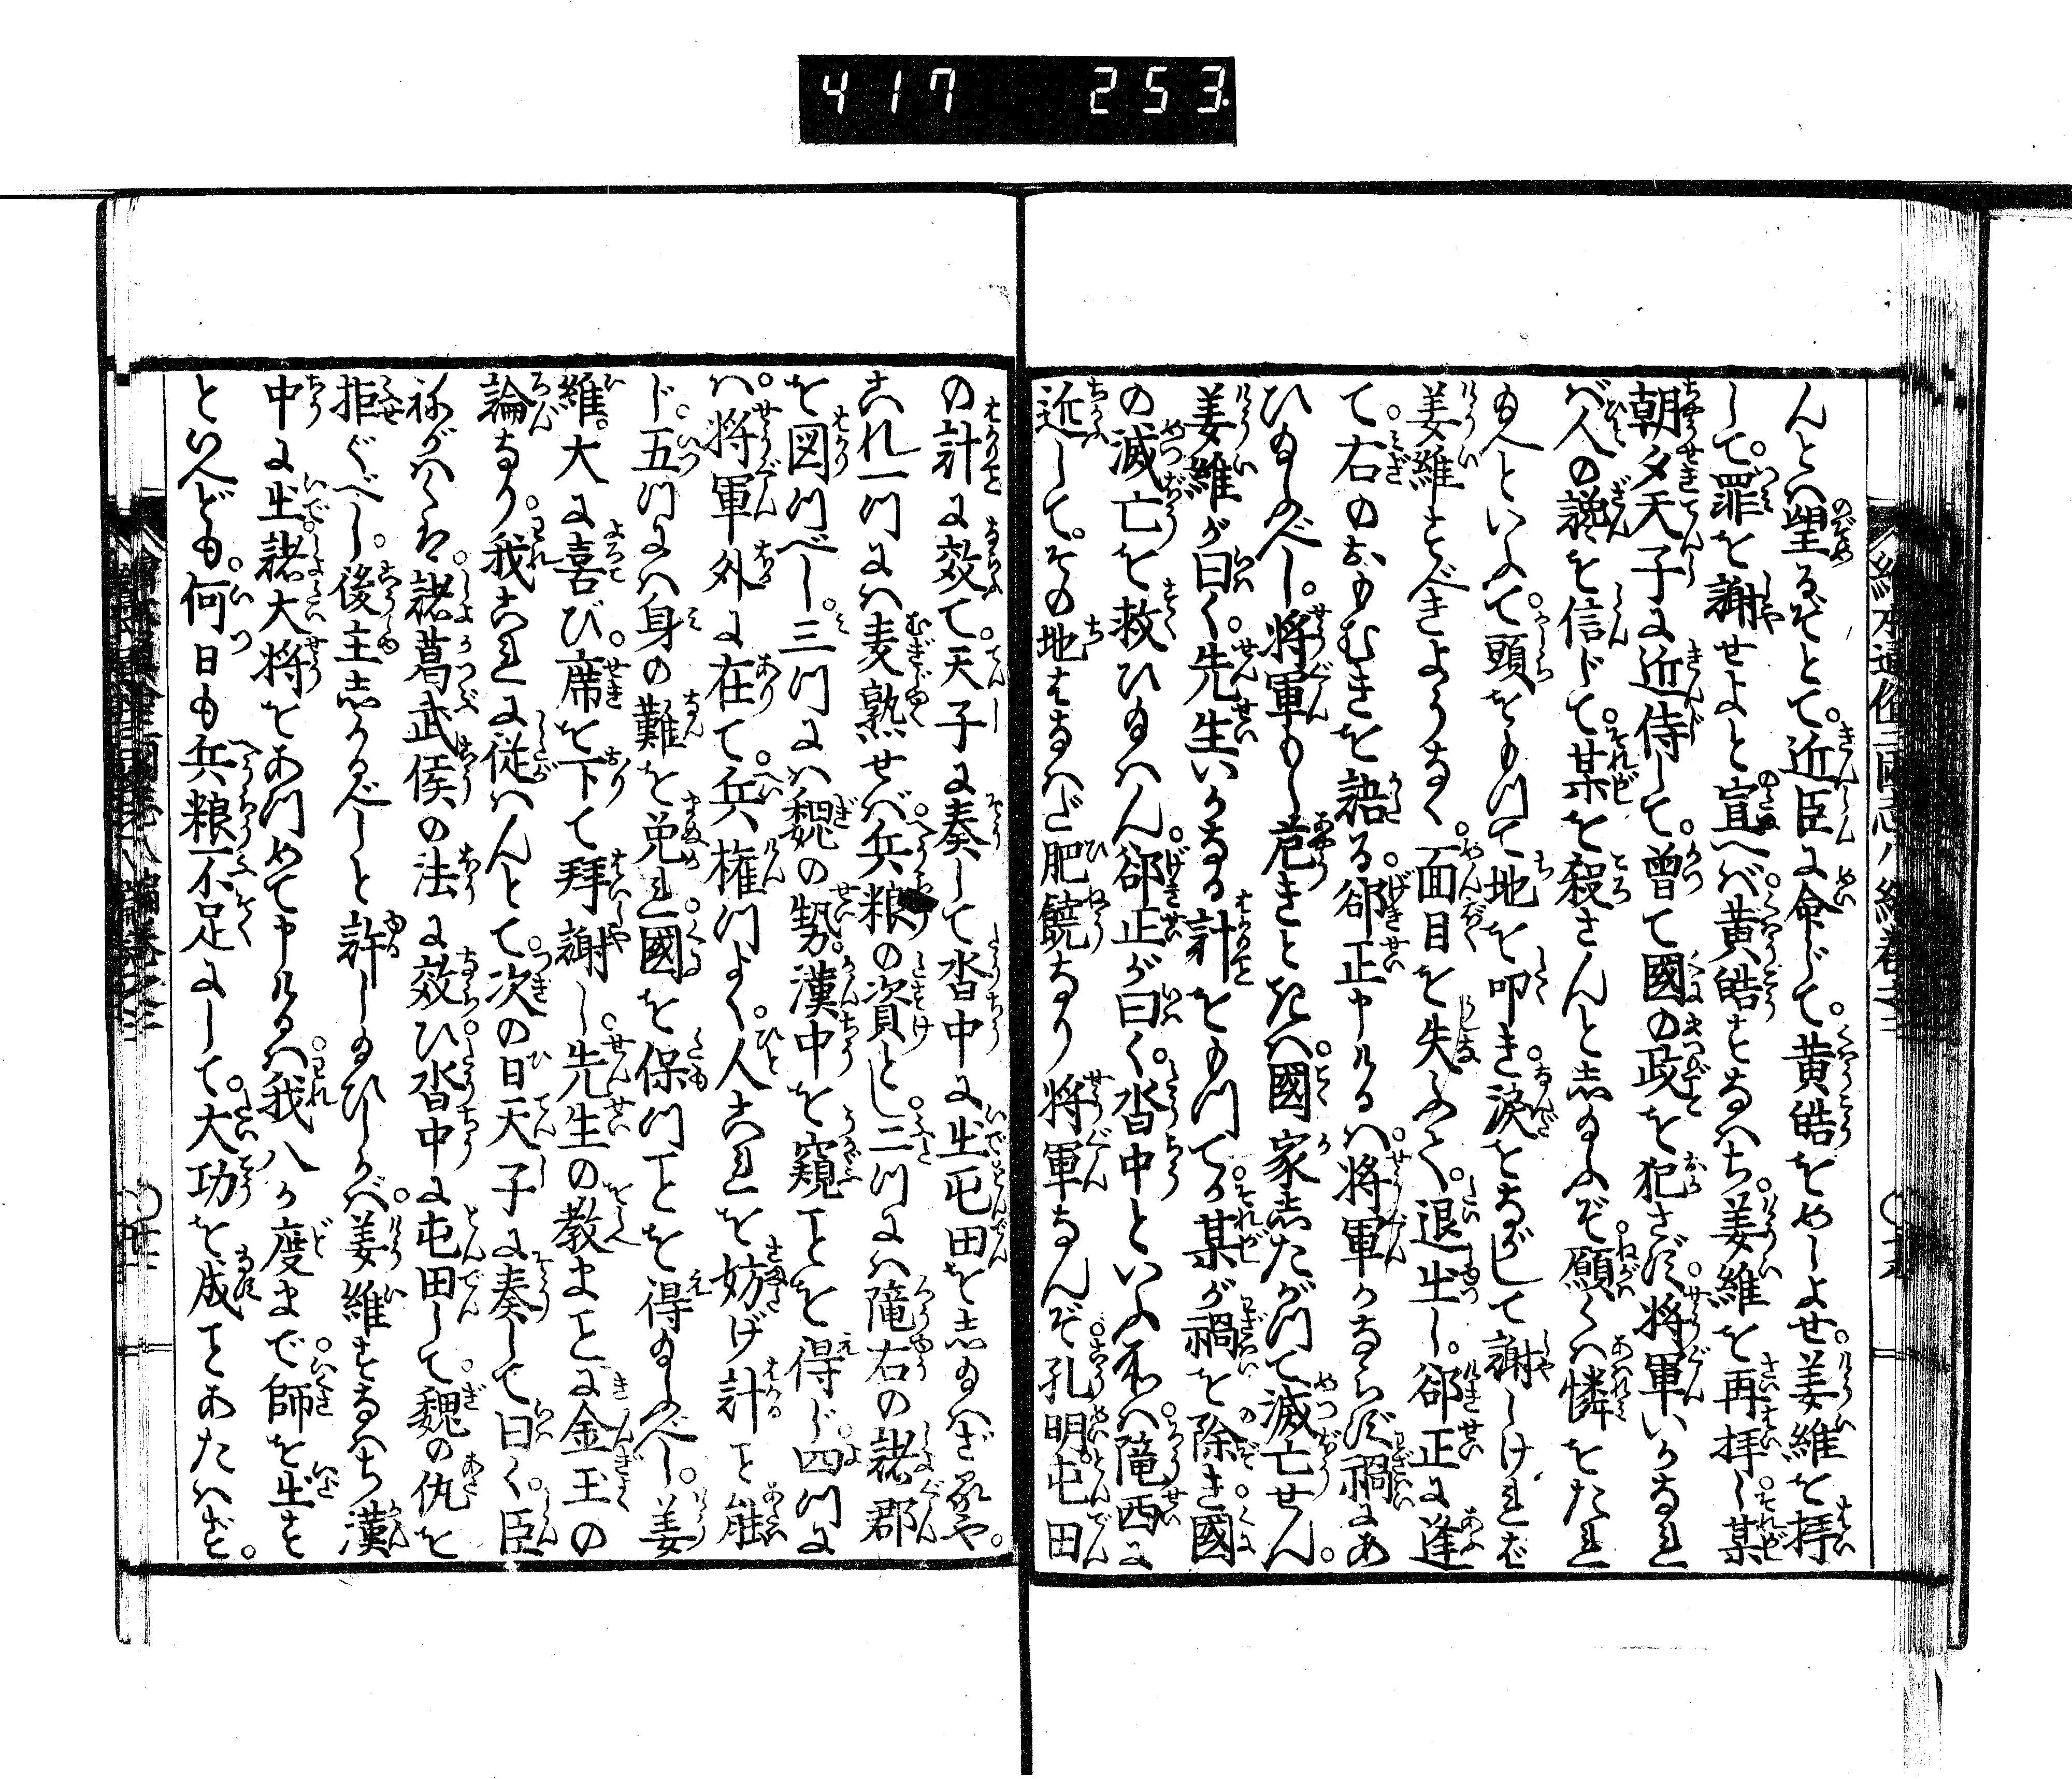 417 253
んとハ望るぞとて。近臣に命じて。黄皓をめしよせ。姜維を拝
して。罪を謝せよと宣へバ。黄皓すなハち。姜維を再拝し。某
朝夕天子に近侍して。曽て國の政を犯さず。将軍いかなれ
バ人の讒を信じて。某を殺さんとし給ふぞ。願くハ憐をたれ
給へといふて。頭をもつて地を叩き。涙をながして謝しけれども
姜維とゞむべきようなく。面目を失ふて。退出し。郤正に逢
て。右のおもむきを語る。郤正申けるハ。将軍かならず禍にあ
ひ給ふべし。将軍もし危きときハ。國家したがつて滅亡せん。
姜維が曰く。先生いかなる計をもつてか。某が禍を除き。國
の滅亡を救ひ給ハん。郤正が曰く。沓中といふ所ハ。隴西に
近して。その地はなハだ肥饒なり。将軍なんぞ。孔明屯田
の計に效て。天子に奏して沓中に出。屯田をし給ハざるや。
これ一つにハ麦熟せバ。兵粮の資とし。二つにハ隴右の諸郡
を図つべし。三つにハ魏の勢。漢中を窺ことを得ず。四つに
ハ将軍外に在て。兵権つよく。人これを妨げ計こと能
ず。五つにハ身の難を免れ。國を保つことを得給ふべし。姜
維。大に喜び。席を下て拝謝し。先生の教まことに金玉の
論なり。我これに従ハんとて。次の日天子に奏して曰く。臣
ねがハくハ。諸葛武侯の法に效ひ。沓中に屯田して。魏の仇を
拒ぐべし。後主しかるべしと許し給ひしかバ。姜維すなハち漢
中に出。諸大将をあつめて申けるハ。我八か度まで。師を出す
といへども。何日も兵粮不足にして。大功を成ことあたハず。